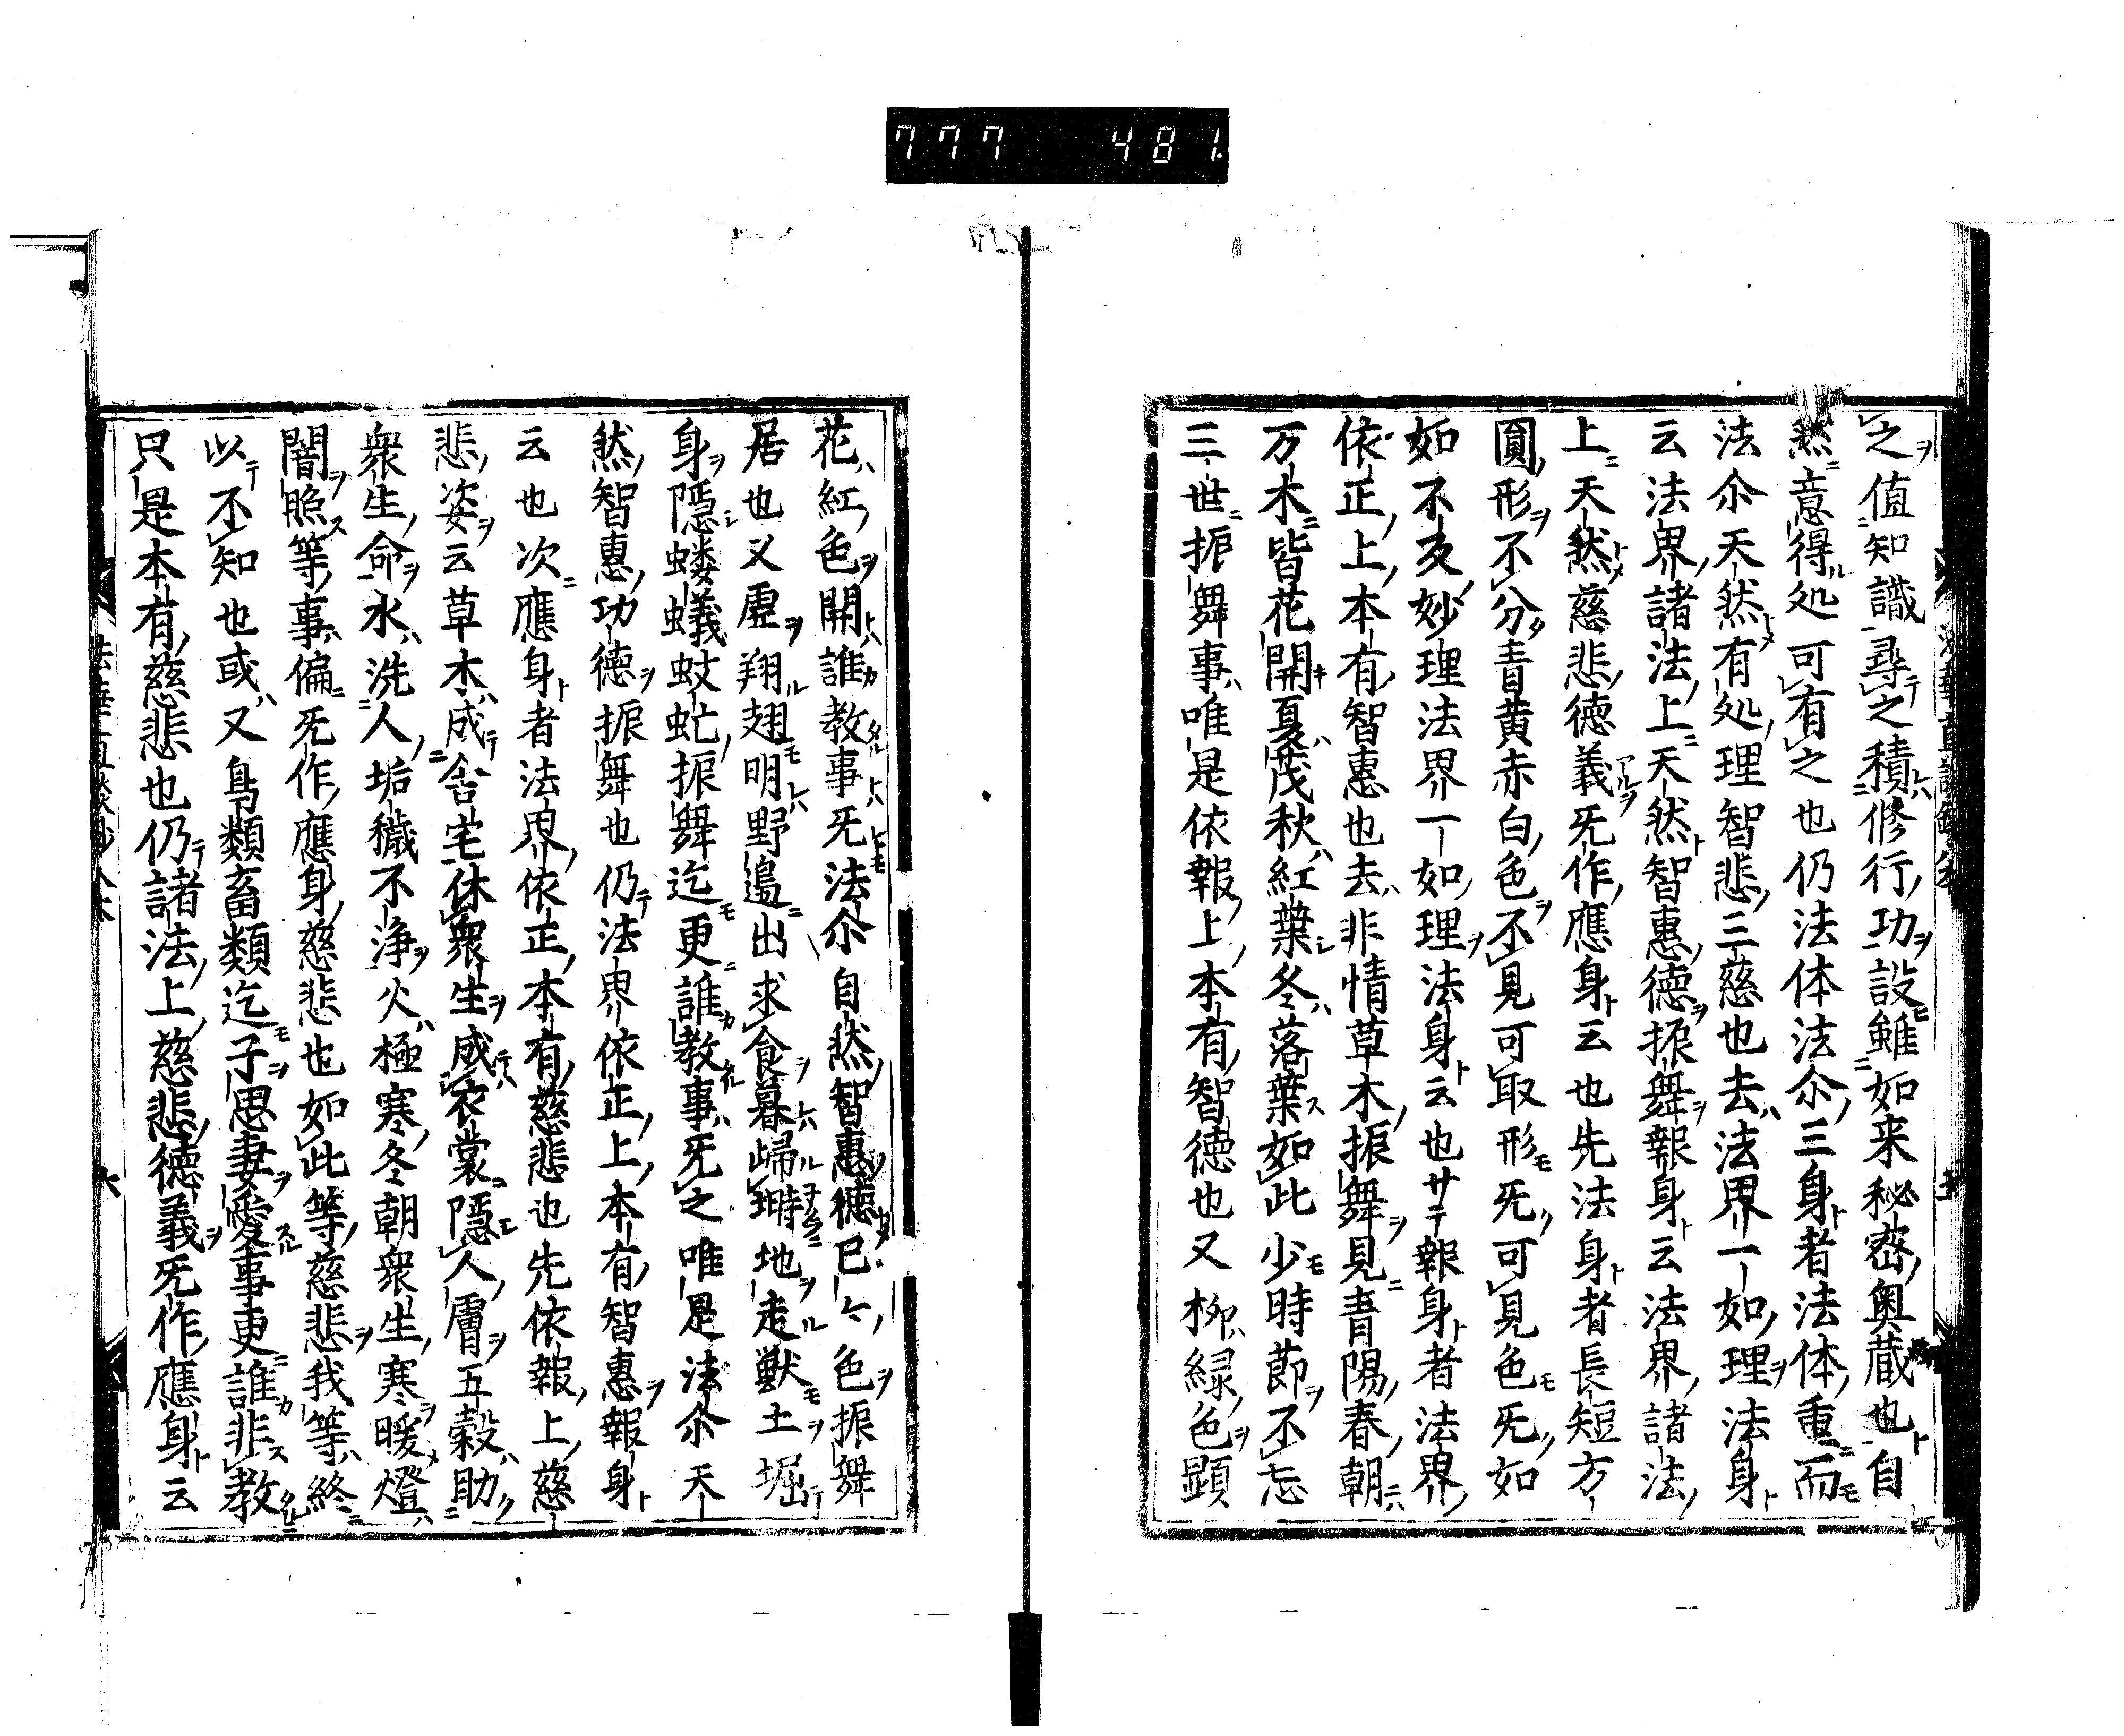 777 481.
之値知識尋之積修行功設雖如来秘密奥蔵也自
然意得処可有之也仍法体法尒三身者法体重而
法尒天然有処理智悲三慈也去法界一如理法身
云法界諸法上天然智惠徳振舞報身云法界諸法
上天然慈悲徳義旡作應身云也先法身者長短方
圓形不分青黄赤白色不見可取形旡可見色旡如
如不変妙理法界一如理法身云也サテ報身者法界
依正上本有智惠也去非情草木振舞見青陽春朝
万木皆花開夏茂秋紅葉冬落葉如此少時莭不忘
三世振舞事唯是依報上本有智徳也又柳緑色顕
花紅色開誰教事旡法尒自然智惠徳已色振舞
居也又虚翔翅明野邉出求食暮歸塒地走獣土堀
身隠螻蟻蚊虻振舞迄更誰教事旡之唯是法尒天
然智惠功徳振舞也仍法界依正上本有智惠報身
云也次應身者法界依正本有慈悲也先依報上慈
悲姿云草木成舎宅休衆生成衣裳隠人膚五穀助
衆生命水洗人垢穢不浄火極寒冬朝衆生寒暖燈
闇照等事偏旡作應身慈悲也如此等慈悲我等終
以不知也或又鳥類畜類迄子思妻愛事更誰非教
只是本有慈悲也仍諸法上慈悲徳義旡作應身云
六